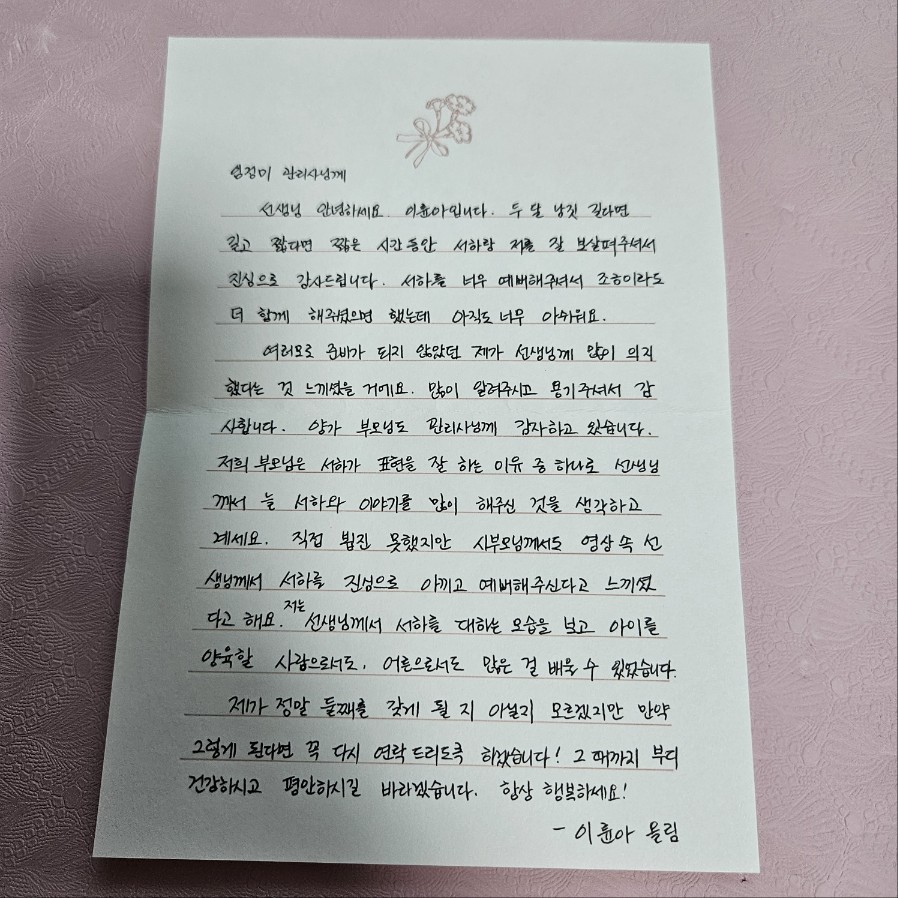 엄정미 관리사님께
선생님 안녕하세요. 이윤아입니다. 두 달 남짓 길다면
길고 짧다면 짧은 시간동안 서하랑 저를 잘 보살펴주셔서
진심으로 감사드립니다. 서하를 너무 예뻐해주셔서 조금이라도
더 함께 해주셨으면 했는데 아직도 너무 아쉬워요.
여러모로 준비가 되지 않았던 제가 선생님께 많이 의지
했다는 것 느끼셨을 거에요. 많이 알려주시고 용기주셔서 감
사합니다. 양가 부모님도 관리사님께 감사하고 있습니다.
저희 부모님은 서하가 표현을 잘 하는 이유 중 하나로 선생님
께서 늘 서하와 이야기를 많이 해주신 것을 생각하고
계세요. 직접 뵙진 못했지만 시부모님께서도 영상 속 선
생님께서 서하를 진심으로 아끼고 예뻐해주신다고 느끼셨
다고 해요. 저는 선생님께서 서하를 대하는 모습을 보고 아이를
양육할 사람으로서도, 어른으로서도 많은 걸 배울 수 있었습니다.
제가 정말 둘째를 갖게 될 지 아닐지 모르겠지만 만약
그렇게 된다면 꼭 다시 연락 드리도록 하겠습니다! 그 때까지 부디
건강하시고 평안하시길 바라겠습니다. 항상 행복하세요!
- 이윤아 올림